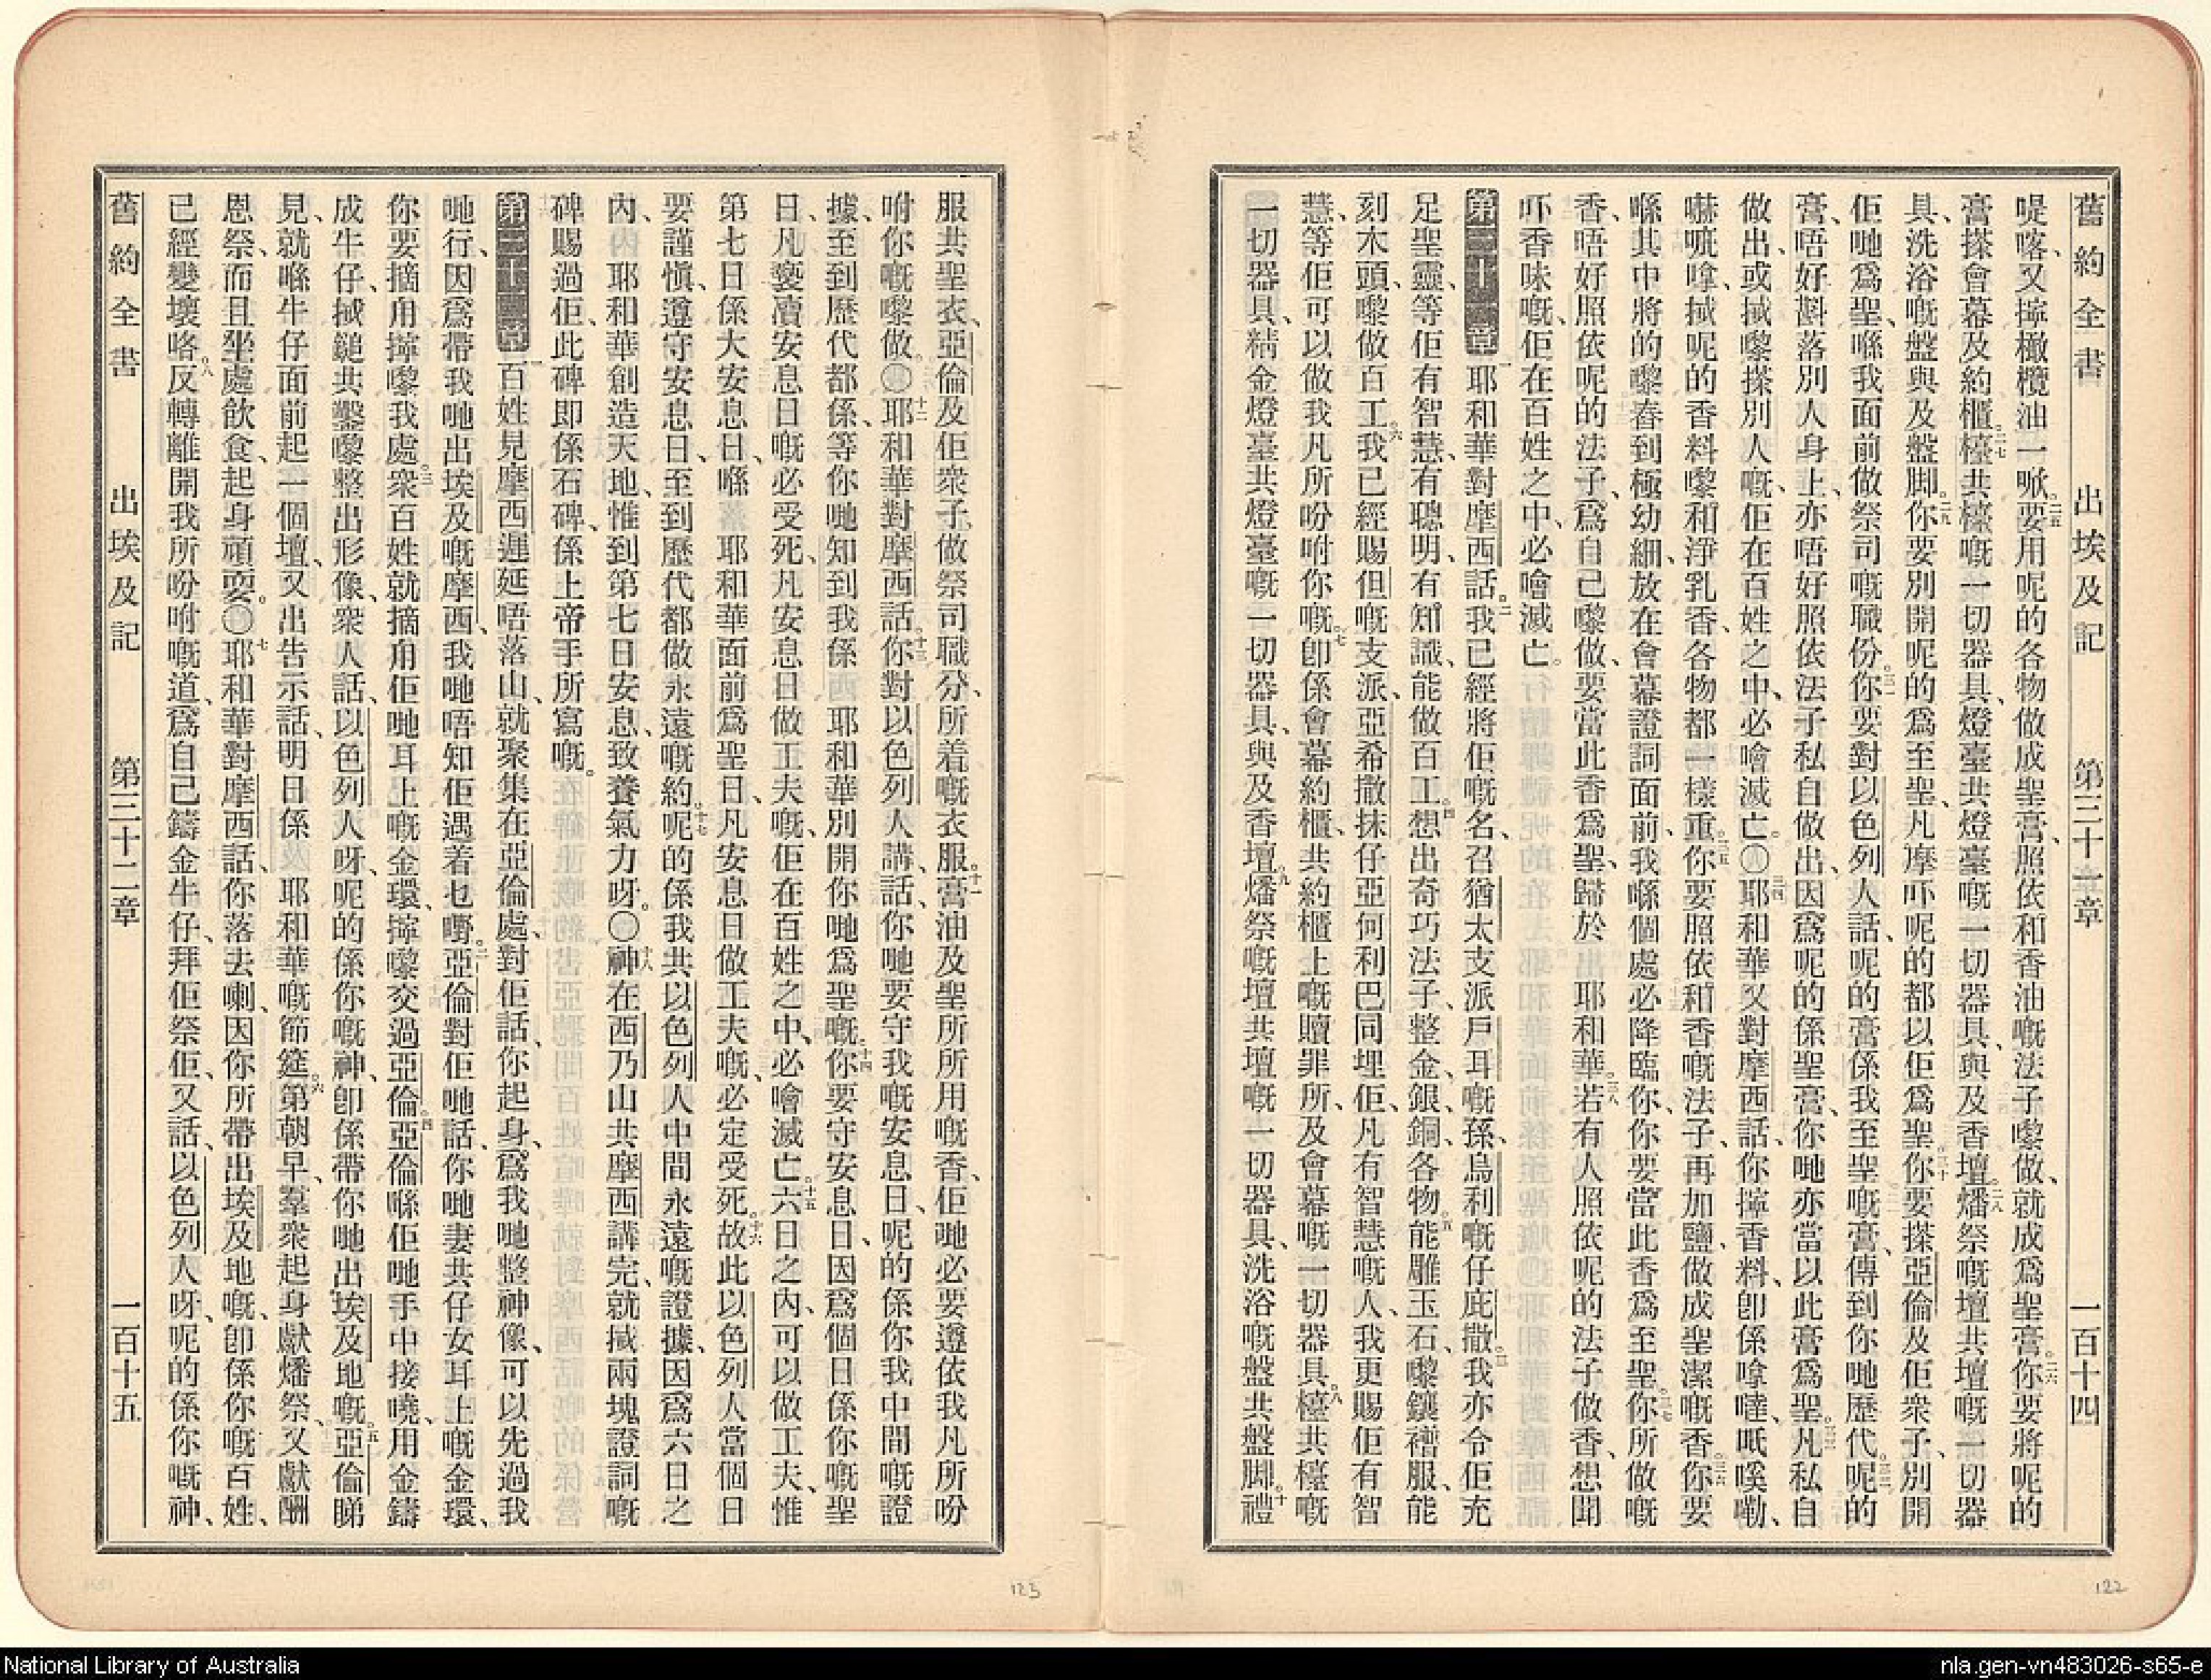 舊約全書 出埃及記 第三十一章 一百十四
喼喀、又擰橄欖油一㗎。二五要用呢的各物做成聖膏、照依和香油嘅法子嚟做、就成爲聖膏。二六你要將呢的
膏搽會幕及約櫃。二七檯共檯嘅一切器具、燈臺共燈臺嘅一切器具、與及香壇。二八燔祭嘅壇共壇嘅一切器
具、洗浴嘅盤與及盤脚。二九你要別開呢的爲至聖、凡摩吓呢的都以佢爲聖。三十你要搽亞倫及佢衆子、別開
佢哋爲聖、喺我面前做祭司嘅職份。三一你要對以色列人話、呢的膏係我至聖嘅膏、傳到你哋歷代。三二呢的
膏、唔好斟落別人身上、亦唔好照依法子私自做出、因爲呢的係聖膏、你哋亦當以此膏爲聖。三三凡私自
做出、或搣嚟搽別人嘅、佢在百姓之中、必噲滅亡。〇三四耶和華又對摩西話、你擰香料、卽係嗱噠呧、嗘嘞、
嚇𠺘嗱、搣呢的香料嚟和淨乳香、各物都一樣重。三五你要照依和香嘅法子、再加鹽、做成聖潔嘅香。三六你要
喺其中將的嚟舂到極幼細、放在會幕證詞面前、我喺個處必降臨你、你要當此香爲至聖。三七你所做嘅
香、唔好照依呢的法子、爲自己嚟做、要當此香爲聖、歸於耶和華。三八若有人照依呢的法子做香、想聞
吓香味嘅、佢在百姓之中、必噲滅亡。
第三十一章 一耶和華對摩西話。二我已經將佢嘅名、召猶太支派戶耳嘅孫、烏利嘅仔庇撒。三我亦令佢充
足聖靈、等佢有智慧、有聰明、有知識、能做百工。四想出奇巧法子、整金、銀、銅、各物。五能雕玉石、嚟鑲禮服、能
刻木頭、嚟做百工。六我已經賜但嘅支派、亞希撒抹仔亞何利巴同埋佢、凡有智慧嘅人、我更賜佢有智
慧、等佢可以做我凡所吩咐你嘅。七卽係會幕約櫃、共約櫃上嘅贖罪所、及會幕嘅一切器具。八檯共檯嘅
一切器具、精金燈臺共燈臺嘅一切器具、與及香壇。九燔祭嘅壇共壇嘅一切器具、洗浴嘅盤共盤脚。十禮
服共聖衣、亞倫及佢衆子。做祭司職分、所着嘅衣服。十一膏油及聖所所用嘅香、佢哋必要遵依我凡所吩
咐你嘅嚟做。〇十二耶和華對摩西話。十三你對以色列人講話、你哋要守我嘅安息日、呢的係你我中間嘅證
據、至到歷代都係、等你哋知到我係耶和華別開你哋爲聖嘅。十四你要守安息日、因爲個日係你嘅聖
日、凡褻瀆安息日嘅必受死、凡安息日做工夫嘅、佢在百姓之中、必噲滅亡。十五六日之內、可以做工夫、惟
第七日係大安息日、喺耶和華面前爲聖日、凡安息日做工夫嘅、必定受死。十六故此以色列人當個日
要謹愼、遵守安息日、至到歷代都做永遠嘅約。十七呢的係我共以色列人中間永遠嘅證據、因爲六日之
內、耶和華創造天地、惟到第七日安息、致養氣力呀。〇十八神在西乃山共摩西講完、就搣兩塊證詞嘅
碑賜過佢、此碑卽係石碑、係上帝手所寫嘅。
第三十二章 一百姓見摩西遲延唔落山、就聚集在亞倫處、對佢話、你起身、爲我哋整神像、可以先過我
哋行、因爲帶我哋出埃及嘅摩西、我哋唔知佢遇着乜嘢。二亞倫對佢哋話、你哋妻共仔女耳上嘅金環、
你要摘甪擰嚟我處。三衆百姓就摘甪佢哋耳上嘅金環、擰嚟交過亞倫。四亞倫喺佢哋手中接曉、用金鑄
成牛仔、搣鎚共鑿嚟整出形像、衆人話、以色列人呀、呢的係你嘅神、卽係帶你哋出埃及地嘅。五亞倫睇
見、就喺牛仔面前起一個壇、又出吿示話、明日係耶和華嘅節筵。六第朝早、羣衆起身獻燔祭、又獻酬
恩祭、而且坐處飲食、起身頑耍。〇七耶和華對摩西話、你落去喇、因你所帶出埃及地嘅、卽係你嘅百姓、
已經變壞咯。八反轉離開我所吩咐嘅道、爲自己鑄金牛仔、拜佢祭佢、又話、以色列人呀、呢的係你嘅神、
舊約全書 出埃及記 第三十二章 一百十五
123
122
National Library of Australia
nla.gen-vn483026-s65-e